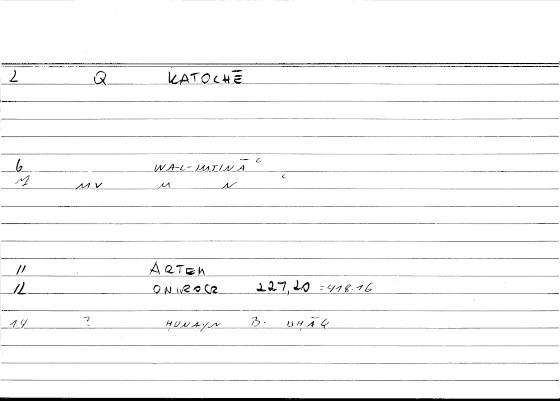 2 Q KATOCHĒ
6 WA-L-IMTINĀʿ
M MV M N ʿ
11 ARTEM
12 ONIROCR 227,20 =418.16
14 ? HUNAYN B. ISHĀQ